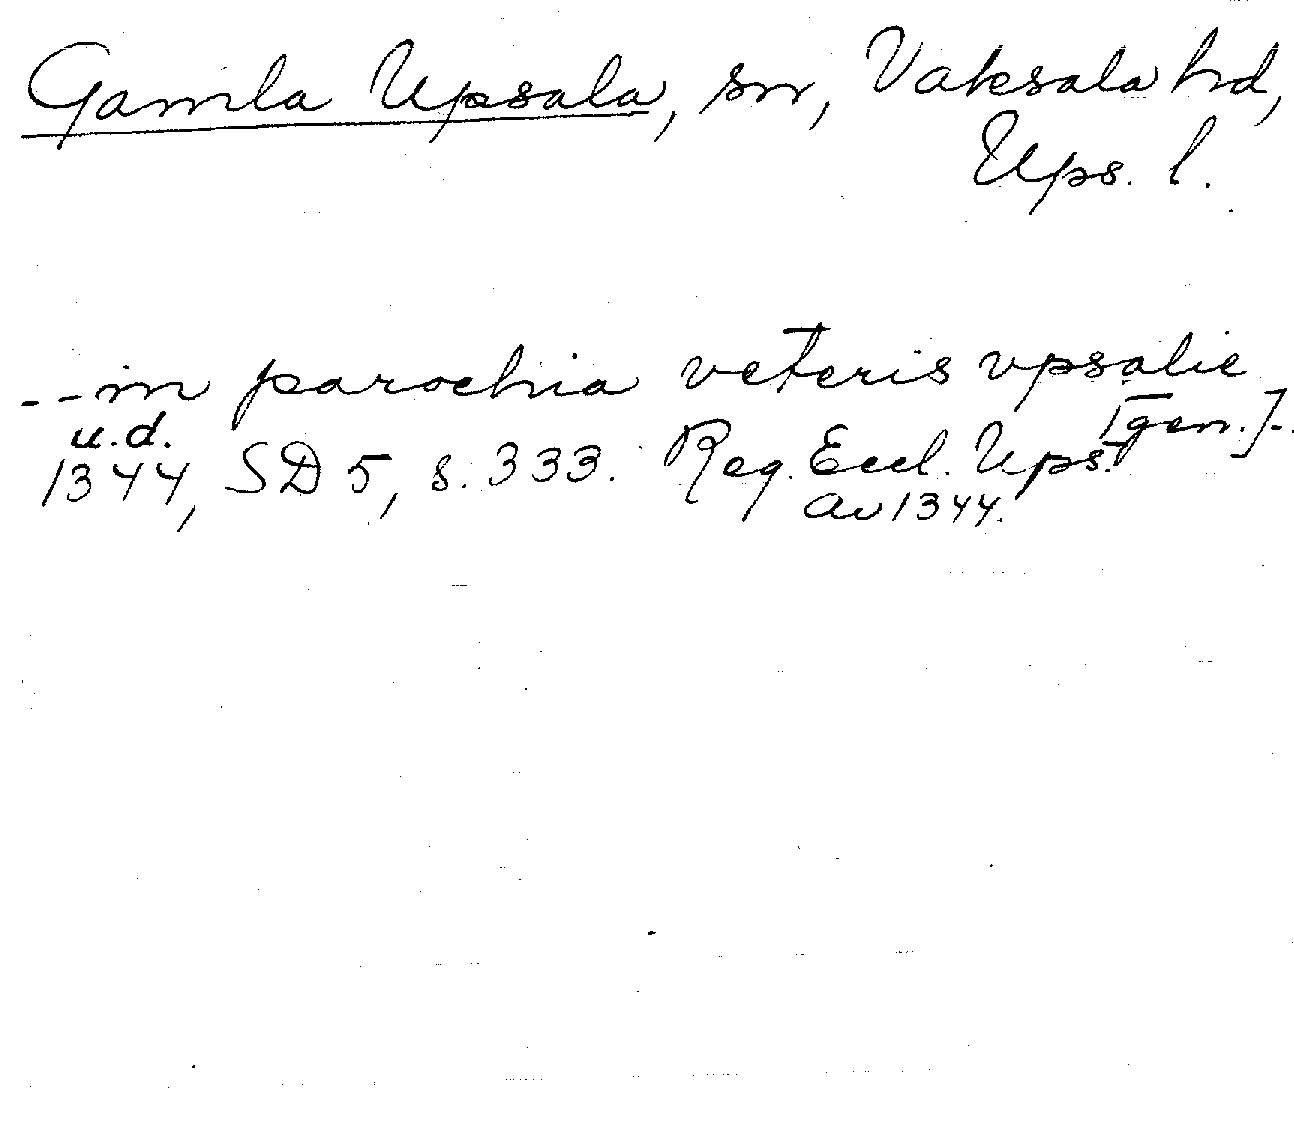 Gamla Upsala, sn, Vaksala hd,
Ups. l.
--in parochia veteris vpsalie
[gen.]-.
u.d.
1344, SD 5, s. 333. Reg. Eccl. Ups.
av 1344.